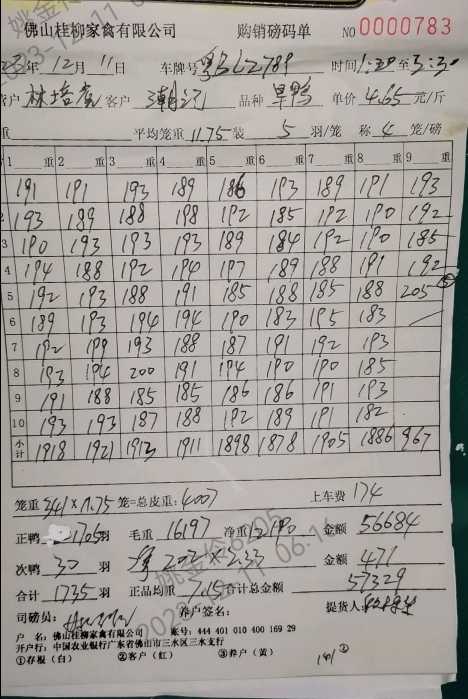 佛山桂柳家禽有限公司 购销磅码单 NO 0000783
23年12月11日 车牌号 粤 时间1:20至3:30
客户 林培 客户 潮记 品种 旱鸭 单价 4.65 元/斤
重 平均笼重 11.75 装 5 羽/笼 称 4 笼/磅
1 重 2 重 3 重 4 重 5 重 6 重 7 重 8 重 9 重
191 191 193 189 186 193 189 191 193
2 193 189 188 198 192 185 192 190 192
3 190 193 193 193 189 184 192 190 185
4 194 188 192 194 197 189 188 191 192
5 192 193 188 191 185 188 185 188 205 ⑤
6 189 193 194 194 190 183 195 183
7 192 199 193 188 187 191 192 193
8 193 194 200 191 194 190 190 185
9 191 188 185 185 186 186 191 193
10 193 193 187 188 192 189 191 182
小计 1918 1921 1913 1911 1898 1878 1905 1886 967
笼重 341×11.75 笼=总皮重: 4007 上车费 174
正鸭 1705羽 毛重 16197 净重 12190 金额 56684
次鸭 30 羽 202×2.33 金额 471
合计 1735 羽 正品均重 7.15 合计总金额 57329
司磅员: 养户签名: 提货人:
户 名: 佛山桂柳家禽有限公司 账号: 444 401 010 400 169 29
开户行: 中国农业银行广东省佛山市三水区三水支行
①存根(白) ②客户(红) ③养户(黄)